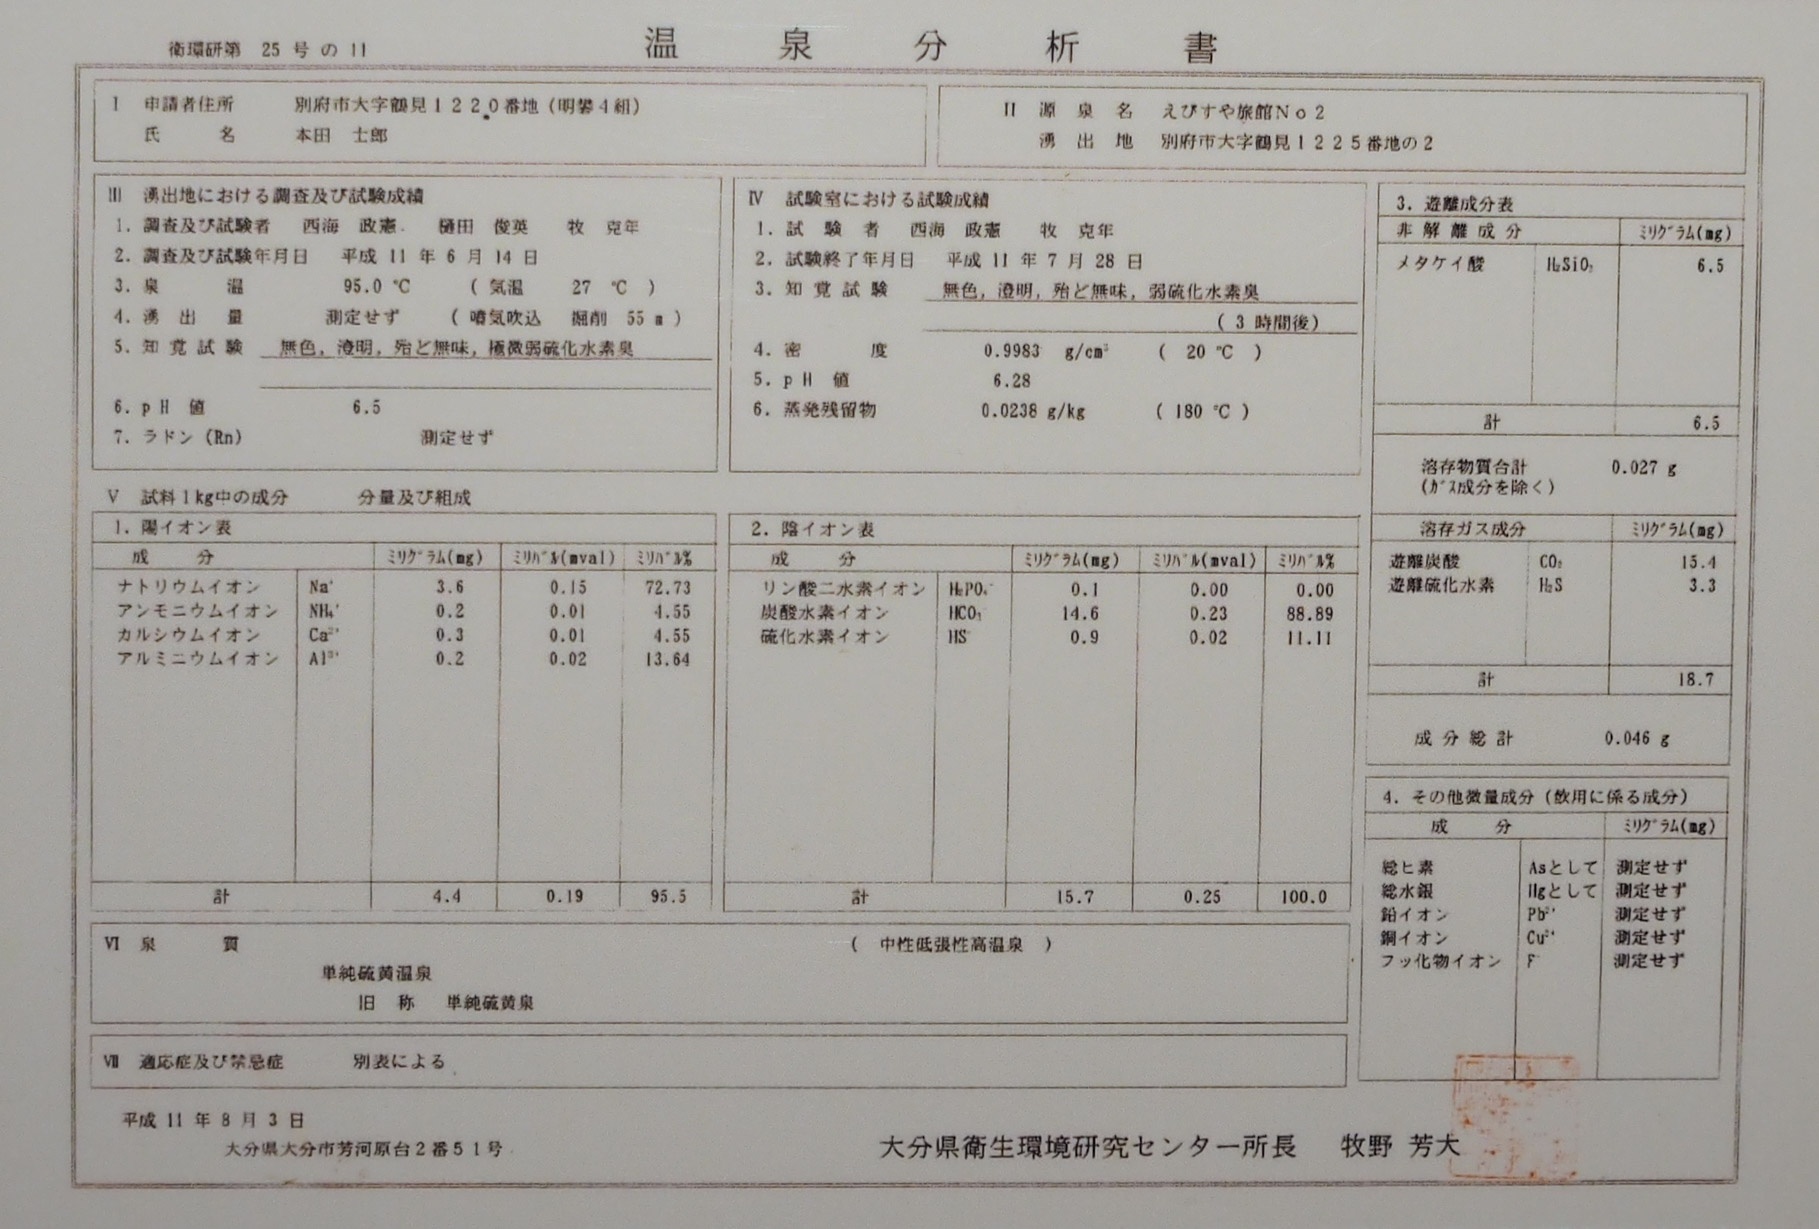 衛環研第 25 号 の 11
温泉分析書
I 申請者住所 別府市大字鶴見1220番地(明礬4組)
氏名 本田 士郎
II 源泉名 えびすや旅館No2
湧出地 別府市大字鶴見1225番地の2
III 湧出地における調査及び試験成績
1. 調査及び試験者 西海 政憲 樋田 俊英 牧 克年
2. 調査及び試験年月日 平成 11 年 6 月 14 日
3. 泉温 95.0 ℃ ( 気温 27 ℃ )
4. 湧出量 測定せず ( 噴気吹込 掘削 55 m )
5. 知覚試験 無色, 澄明, 殆ど無味, 極微弱硫化水素臭
6. pH 値 6.5
7. ラドン (Rn) 測定せず
IV 試験室における試験成績
1. 試験者 西海 政憲 牧 克年
2. 試験終了年月日 平成 11 年 7 月 28 日
3. 知覚試験 無色, 澄明, 殆ど無味, 弱硫化水素臭
( 3 時間後)
4. 密度 0.9983 g/cm³ ( 20 ℃ )
5. pH 値 6.28
6. 蒸発残留物 0.0238 g/kg ( 180 ℃ )
V 試料1kg中の成分 分量及び組成
1. 陽イオン表
成分 ミリグラム(mg) ミリバル(mval) ミリバル%
ナトリウムイオン Na⁺ 3.6 0.15 72.73
アンモニウムイオン NH₄⁺ 0.2 0.01 4.55
カルシウムイオン Ca²⁺ 0.3 0.01 4.55
アルミニウムイオン Al³⁺ 0.2 0.02 13.64
計 4.4 0.19 95.5
2. 陰イオン表
成分 ミリグラム(mg) ミリバル(mval) ミリバル%
リン酸二水素イオン H₂PO₄⁻ 0.1 0.00 0.00
炭酸水素イオン HCO₃⁻ 14.6 0.23 88.89
硫化水素イオン HS⁻ 0.9 0.02 11.11
計 15.7 0.25 100.0
3. 遊離成分表
非解離成分 ミリグラム(mg)
メタケイ酸 H₂SiO₃ 6.5
計 6.5
溶存物質合計 0.027 g
(ガス成分を除く)
溶存ガス成分 ミリグラム(mg)
遊離炭酸 CO₂ 15.4
遊離硫化水素 H₂S 3.3
計 18.7
成分総計 0.046 g
4. その他微量成分(飲用に係る成分)
成分 ミリグラム(mg)
総ヒ素 Asとして 測定せず
総水銀 Hgとして 測定せず
鉛イオン Pb²⁺ 測定せず
銅イオン Cu²⁺ 測定せず
フッ化物イオン F⁻ 測定せず
VI 泉質 ( 中性低張性高温泉 )
単純硫黄温泉
旧称 単純硫黄泉
VII 適応症及び禁忌症 別表による
平成 11 年 8 月 3 日
大分県大分市芳河原台2番51号
大分県衛生環境研究センター所長 牧野 芳大